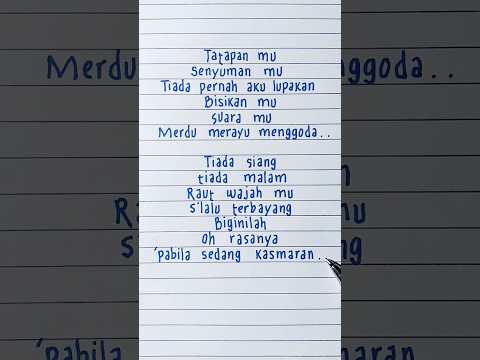 Tatapan mu
senyuman mu
Tiada pernah aku lupakan
Bisikan mu
suara mu
Merdu merayu menggoda..
Tiada siang
tiada malam
Raut wajah mu
s'lalu terbayang
Biginilah
oh rasanya
'pabila sedang kasmaran..